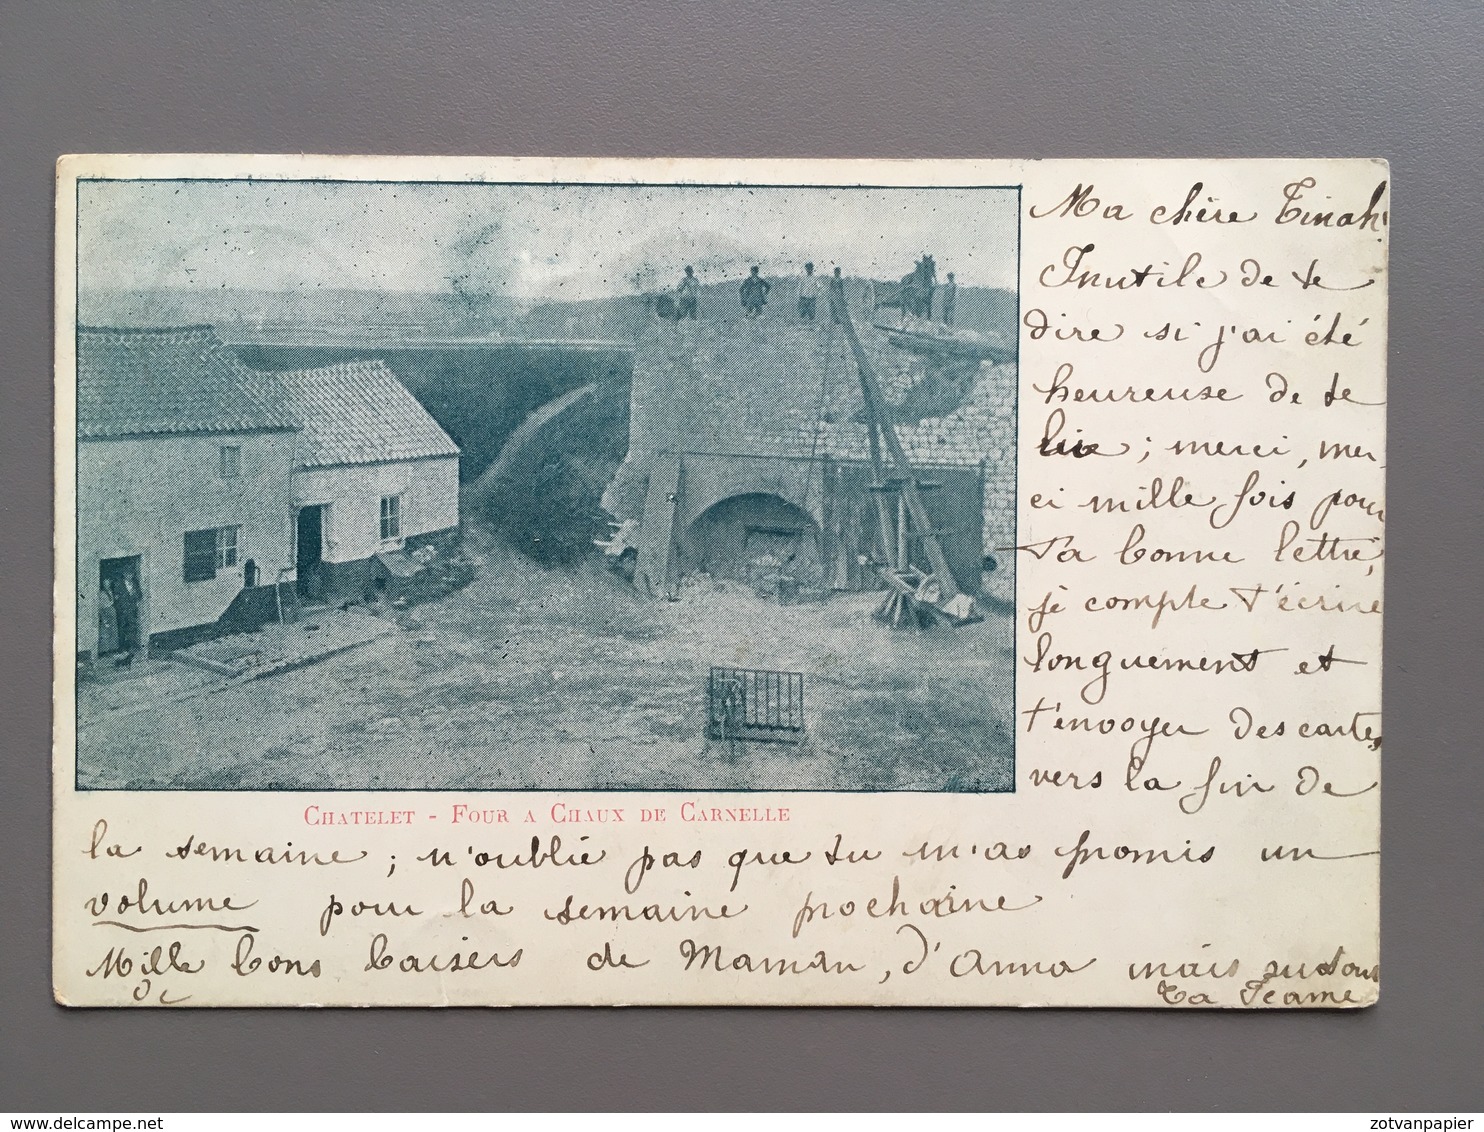 Ma chère Tinah!
Inutile de te
dire si j'ai été
heureuse de te
lire ; merci, mer-
ci mille fois pour
ta bonne lettre,
je compte t'écrire
longuement et
t'envoyer des cartes
vers la fin de
CHATELET - FOUR A CHAUX DE CARNELLE
la semaine ; n'oublie pas que tu m'as promis un
volume pour la semaine prochaine
Mille bons baisers de Maman, d'Anna mais surtout
de
Ta Jeanne
www.delcampe.net
zotvanpapier